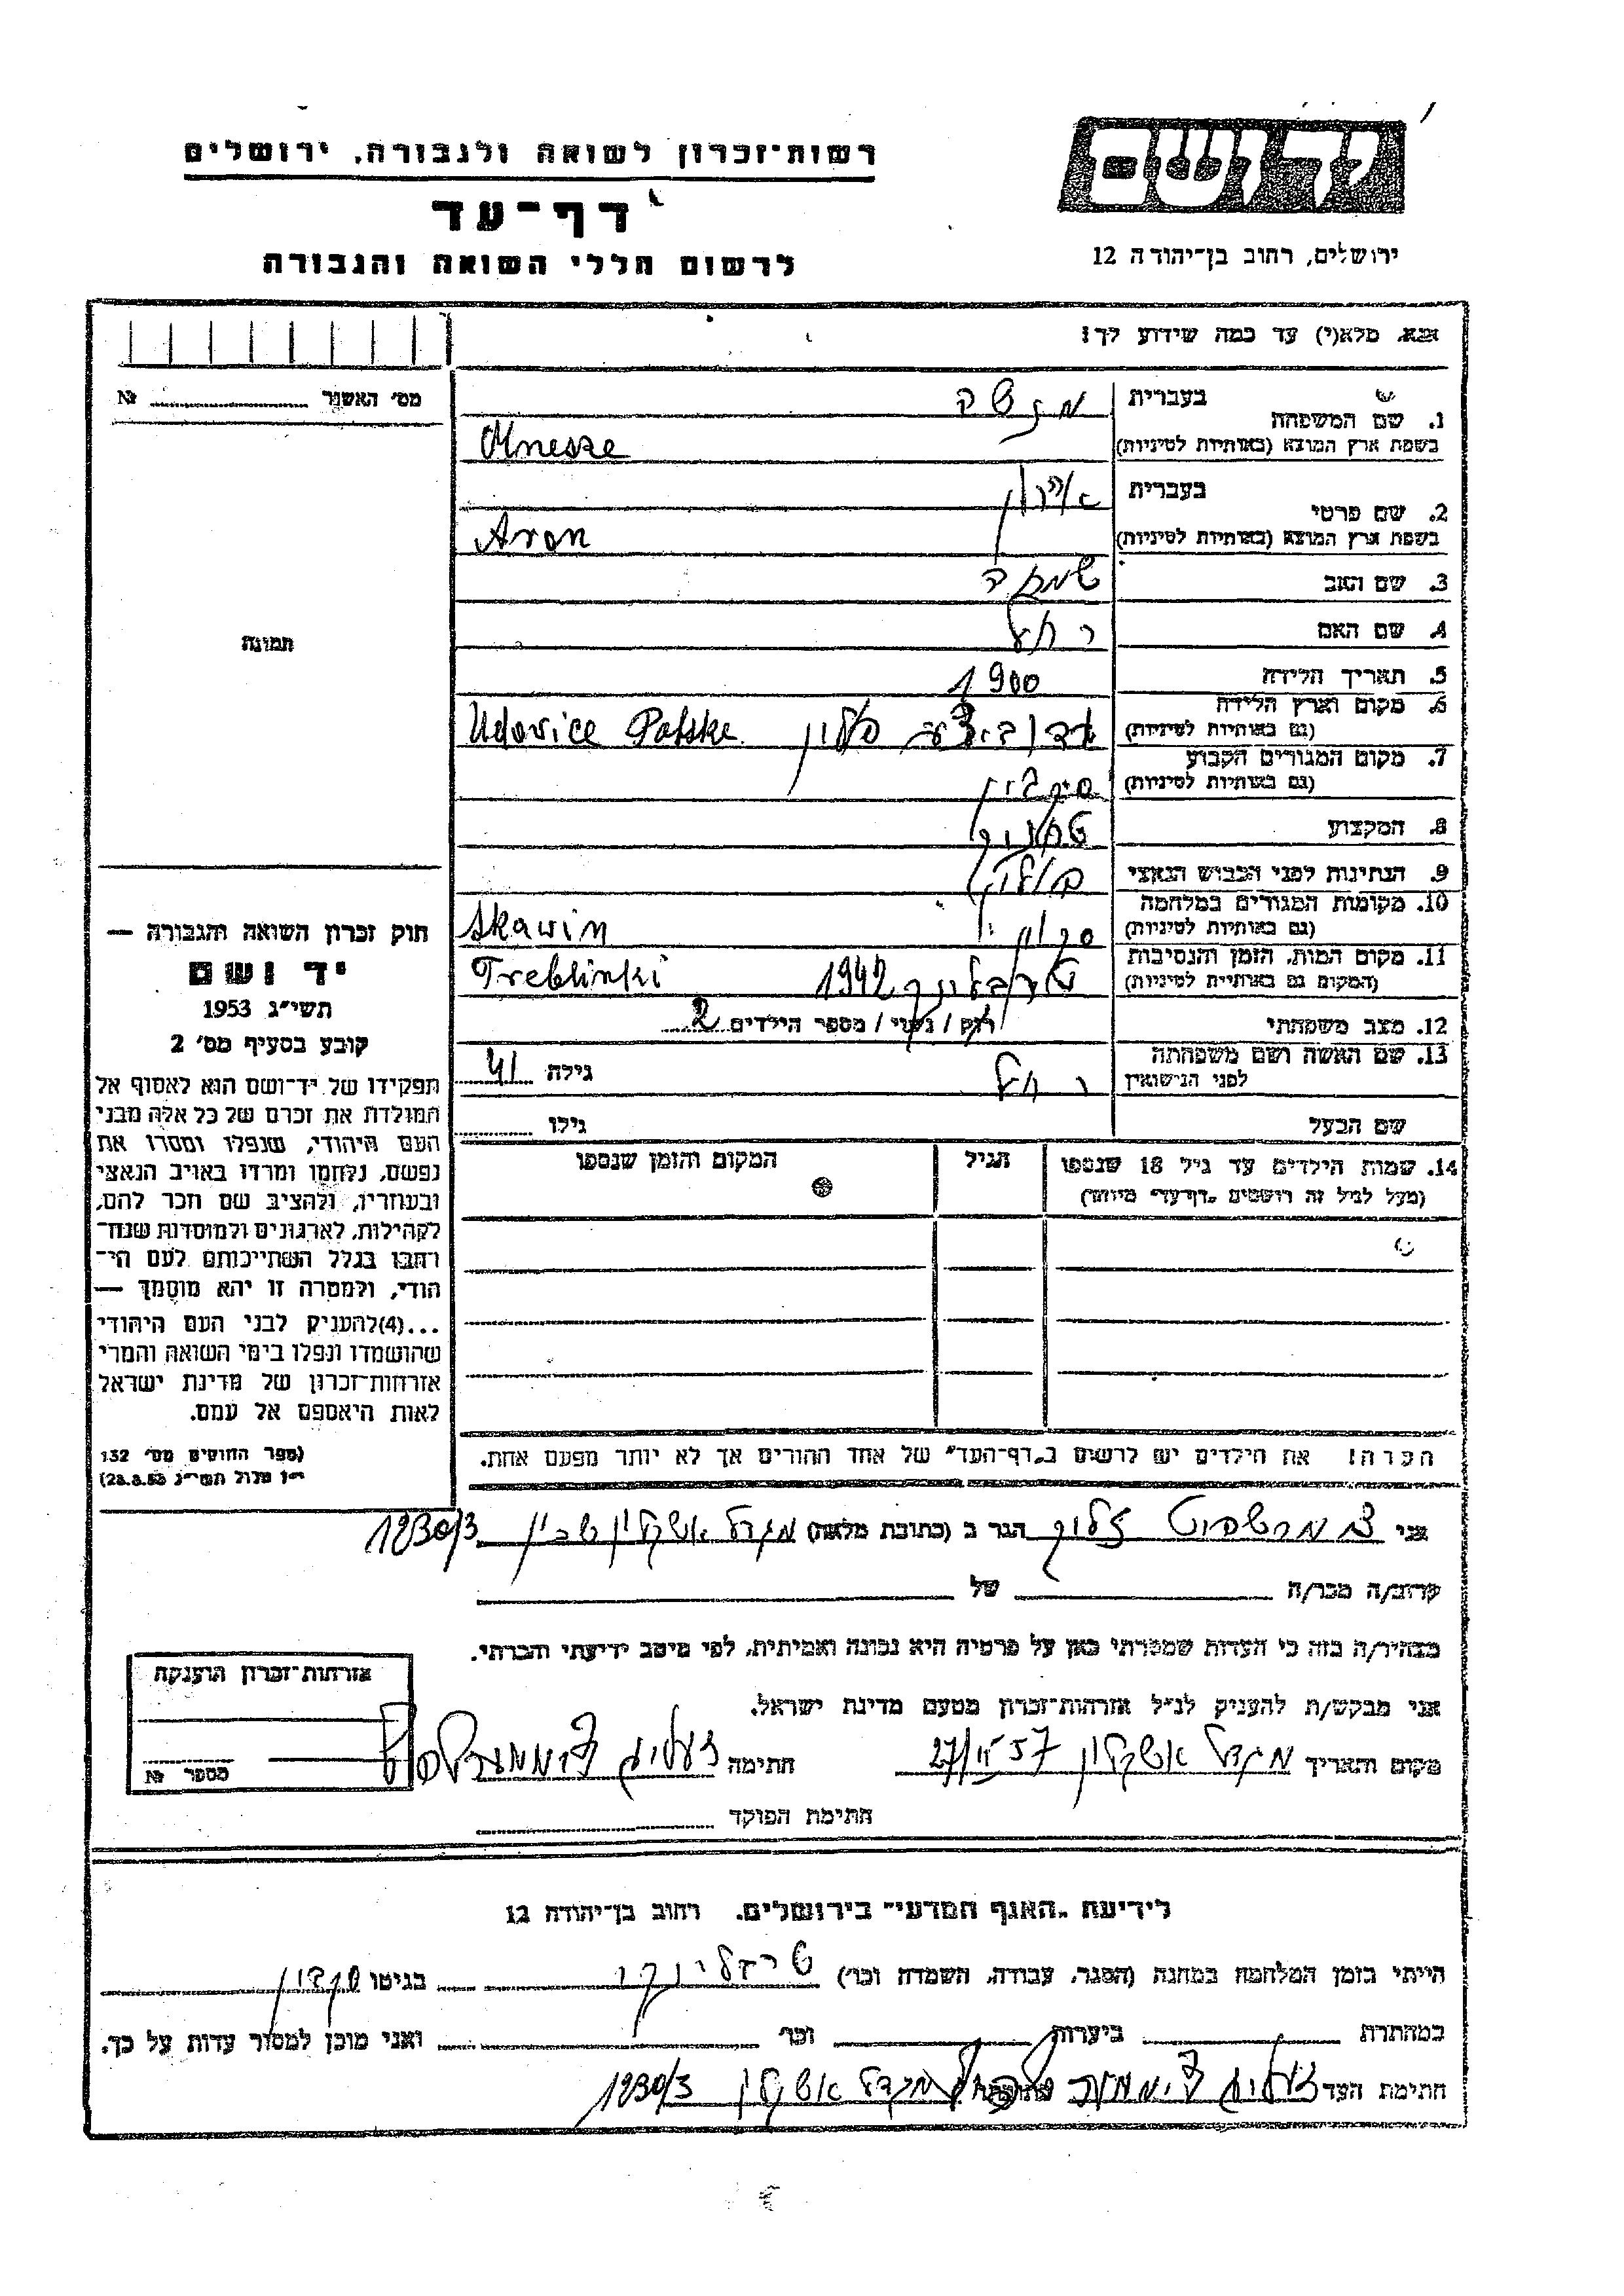 רשות־זכרון לשואה ולגבורה, ירושלים
דף־עד
לרשום חללי השואה והגבורה
יד ושם
ירושלים, רחוב בן־יהודה 12
אנא, מלא(י) עד כמה שידוע לך!
מס׳ האשנר № 
1. שם המשפחה
בעברית
בשפת ארץ המוצא (באותיות לטיניות)
2. שם פרטי
בעברית אהרון
בשפת ארץ המוצא (באותיות לטיניות) Aron
3. שם האב שמחה
4. שם האם רחל
5. תאריך הלידה 1900
6. מקום וארץ הלידה
(גם באותיות לטיניות) פולין Udovice Polske
7. מקום המגורים הקבוע
(גם באותיות לטיניות)
8. המקצוע
9. הנתינות לפני הכבוש הנאצי
10. מקומות המגורים במלחמה
(גם באותיות לטיניות) Skawin
11. מקום המות, הזמן והנסיבות
(המקום גם באותיות לטיניות) טרבלינקי 1942 Treblinki
12. מצב משפחתי רוק / נשוי / מספר הילדים 2
13. שם האשה ושם משפחתה
לפני הנישואין רחל גילה 41
שם הבעל גילו
14. שמות הילדים עד גיל 18 שנספו
(מעל לגיל זה רושמים „דף־עד״ מיוחד)
הגיל
המקום והזמן שנספו
הכרה! את הילדים יש לרשום ב„דף־העד״ של אחד ההורים אך לא יותר מפעם אחת.
תמונה
חוק זכרון השואה והגבורה —
יד ושם
תשי״ג 1953
קובע בסעיף מס׳ 2
תפקידו של יד־ושם הוא לאסוף אל
המולדת את זכרם של כל אלה מבני
העם היהודי, שנפלו ומסרו את
נפשם, נלחמו ומרדו באויב הנאצי
ובעוזריו, ולהציב שם וזכר להם,
לקהילות, לארגונים ולמוסדות שנח־
רבו בגלל השתייכותם לעם הי־
הודי, ולמטרה זו יהא מוסמך —
...(4)להעניק לבני העם היהודי
שהושמדו ונפלו בימי השואה והמרי
אזרחות־זכרון של מדינת ישראל
לאות היאספם אל עמם.
(ספר החוקים מס׳ 132
י״ז אלול תשי״ג 28.8.53)
אני הגר ב (כתובת מלאה) מגדל אשקלון 1230/3
קרוב/ה מכר/ה של
מצהיר/ה בזה כי העדות שמסרתי כאן על פרטיה היא נכונה ואמיתית, לפי מיטב ידיעתי והכרתי.
אני מבקש/ת להעניק לנ״ל אזרחות־זכרון מטעם מדינת ישראל.
מקום ותאריך מגדל אשקלון 27/II 57 חתימה
חתימת הפוקד
אזרחות־זכרון הוענקה
מספר №
לידיעת „האגף המדעי״ בירושלים, רחוב בן־יהודה 12
הייתי בזמן המלחמה במחנה (הסגר, עבודה, השמדה וכו׳) בגיטו
במחתרת ביערות וכו׳ ואני מוכן למסור עדות על כך.
חתימת העד מגדל אשקלון 1230/3